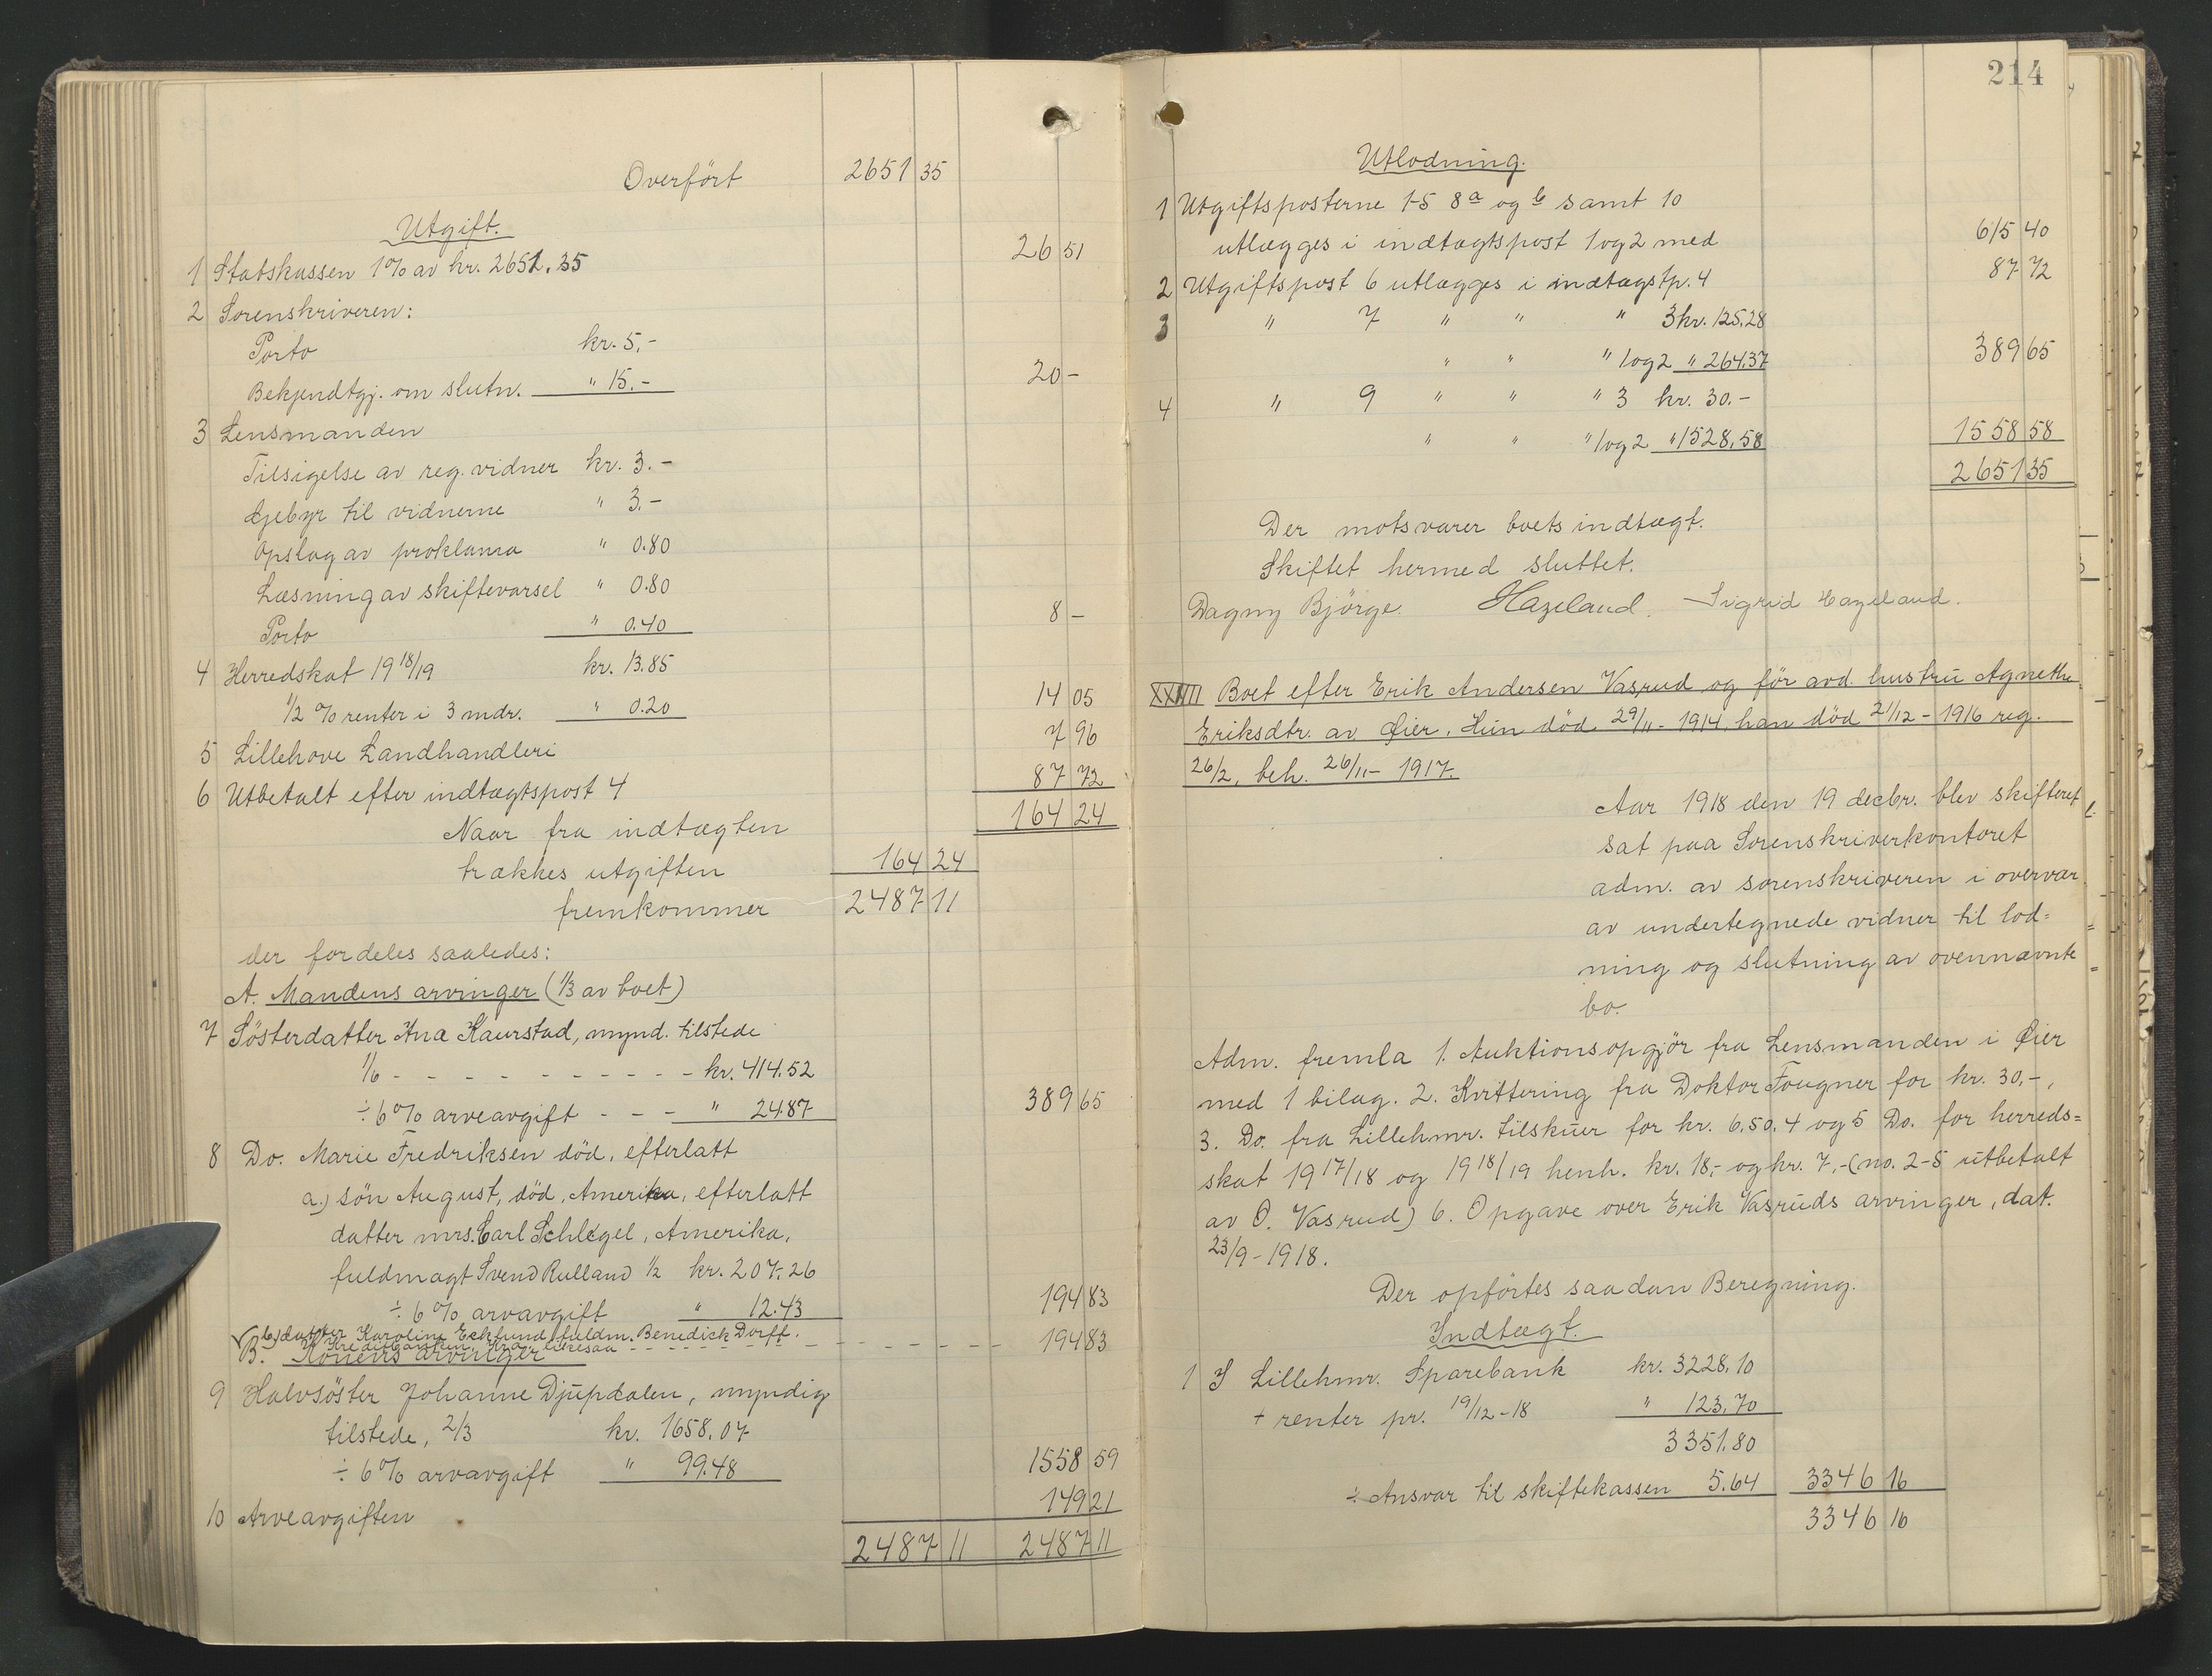 Overført 2651 35
Utgift.
1 Statskassen 1% av kr. 2651.35 26 51
2 Sorenskriveren:
Porto kr. 5.-
Bekjendtgj. om slutn. " 15.- 20 -
3 Lensmanden
Tilsigelse av reg. vidner kr. 3.-
Gjebyr til vidnerne " 3.-
Opslag av proklama " 0.80
Læsning av skiftevarsel " 0.80
Porto " 0.40 8 -
4 Herredskat 19 18/19 kr. 13.85
1/2 % renter i 3 mdr. " 0.20 14 05
5 Lillehove Landhandleri 7 96
6 Utbetalt efter indtægtspost 4 87 72
Naar fra indtægten 164 24
trækkes utgiften 164 24
fremkommer 2487 11
der fordeles saaledes:
A. Mandens arvinger (1/3 av boet)
7 Søsterdatter Ana Kaurstad, mynd. tilstede
1/6 - - - - - - - - - - - kr. 414.52
÷ 6% arveavgift - - - " 24.87 389 65
8 Do. Marie Fredriksen død, efterlatt
a) søn August, død, Amerika, efterlatt
datter mrs. Carl Schlegel, Amerika,
fuldmagt Svend Rulland 1/2 kr. 207.26
÷ 6% arvavgift " 12.43 194 83
b) datter Karoline Ecklund, fuldm. Benedick Dorff.
Kreditbanken, Kra. likesaa - - - - - - - - - - - 194 83
B. Konens arvinger
9 Halvsøster Johanne Djupdalen, myndig
tilstede, 2/3 kr. 1658.07
÷ 6% arvavgift " 99.48 1558 59
10 Arveavgiften 149 21
2487 11 2487 11
214
Utlodning.
1 Utgiftsposterne 1-5 8a og b samt 10
utlægges i indtægtspost 1 og 2 med 615 40
2 Utgiftspost 6 utlægges i indtægstp. 4 87 72
3 " 7 " " " 3 kr. 125.28
" " " 1 og 2 " 264.37 389 65
4 " 9 " " " 3 kr. 30.-
" " " 1 og 2 " 1528,58 1558 58
2651 35
Der motsvarer boets indtægt.
Skiftet hermed sluttet.
Dagny Bjørge. Hazeland. Sigrid Hazeland.
XXVIII Boet efter Erik Andersen Vasrud og før avd. hustru Agnethe
Eriksdtr. av Øier. Hun død 29/11 - 1914, han død 21/12 - 1916 reg.
26/2, beh. 26/11 - 1917.
Aar 1918 den 19 decbr. blev skifteret
sat paa Sorenskriverkontoret
adm. av sorenskriveren i overvær
av undertegnede vidner til lod=
ning og slutning av ovennævnte
bo.
Adm. fremla 1. Auktionsopgjør fra Lensmanden i Øier
med 1 bilag. 2. Kvittering fra Doktor Fougner for kr. 30,-,
3. Do. fra Lillehmr. tilskuer for kr. 6.50. 4 og 5 Do. for herreds=
skat 19 17/18 og 19 18/19 henh. kr. 18,- og kr. 7,- (no. 2-5 utbetalt
av O. Vasrud) 6. Opgave over Erik Vasruds arvinger, dat.
23/9 - 1918.
Der opførtes saadan Beregning.
Indtægt.
1 I Lillehmr. Sparebank kr. 3228.10
+ renter pr. 19/12 - 18 " 123.70
3351.80
÷ Ansvar til skiftekassen 5.64 3346 16
3346 16